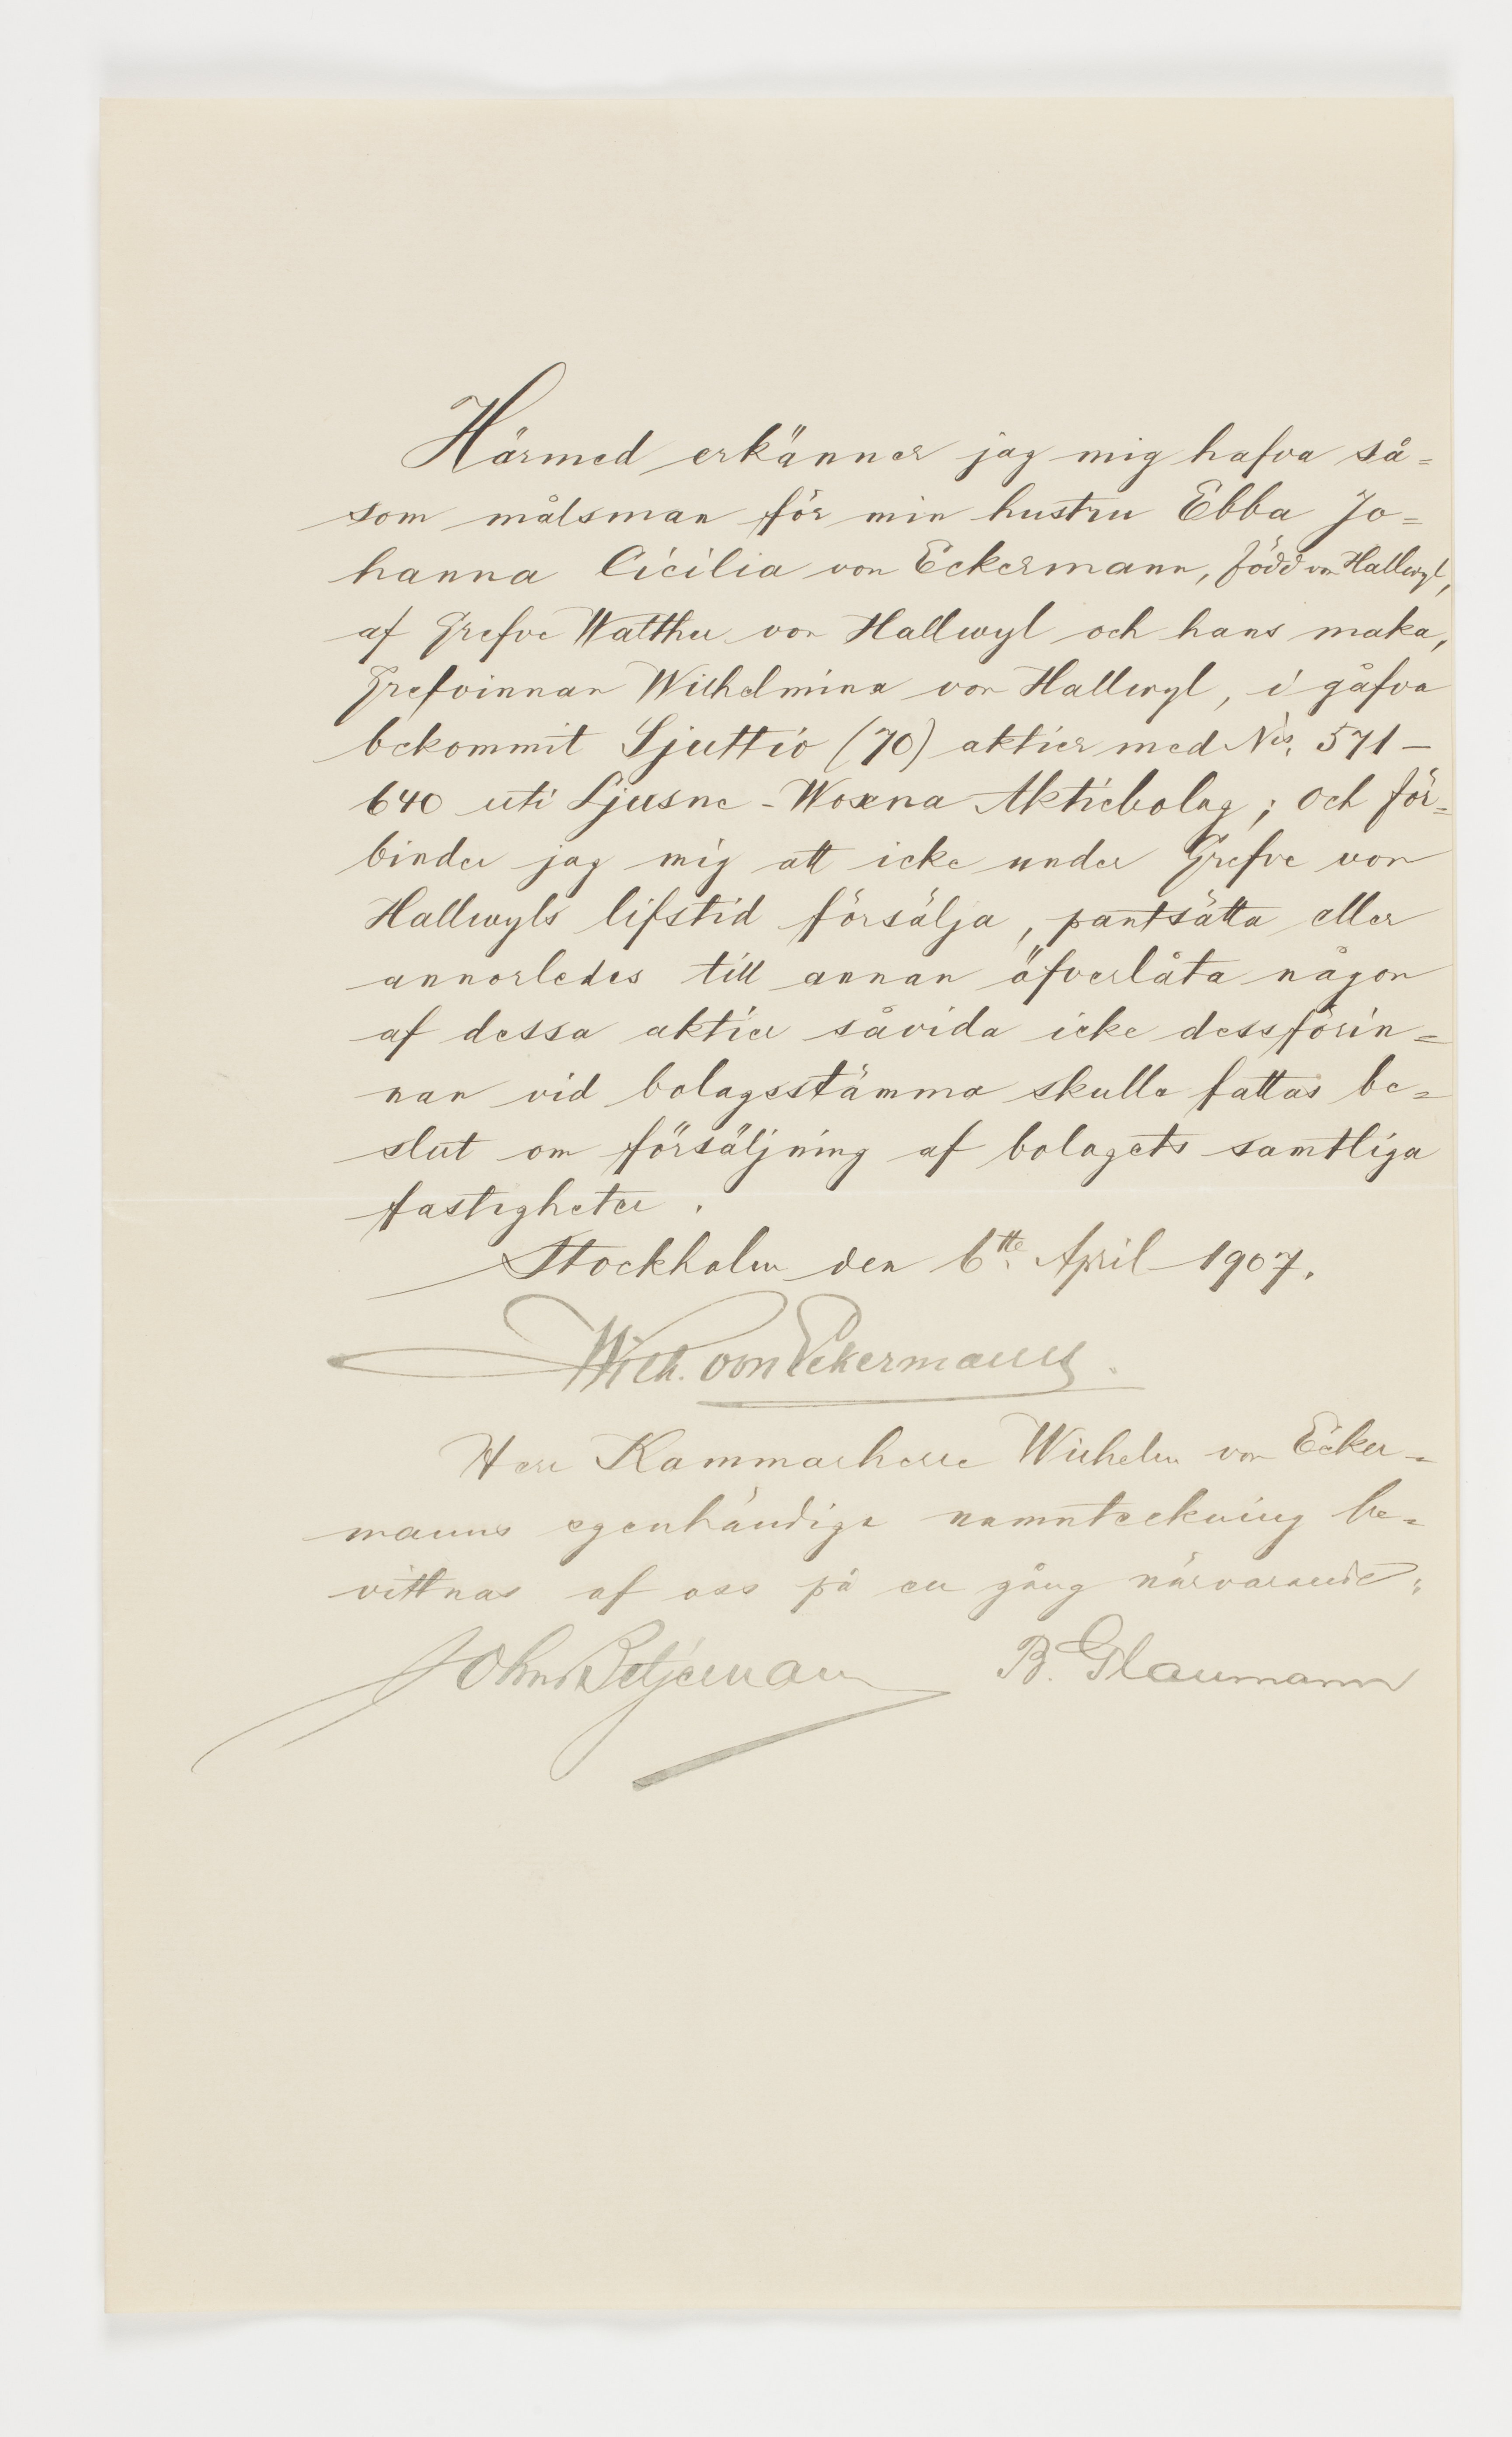 Härmed erkänner jag mig hafva så=
som målsman för min hustru Ebba Jo=
hanna Cicilia von Eckermann, född von Hallwyl,
af Grefve Walther von Hallwyl och hans maka,
Grefvinnan Wilhelmina von Hallwyl, i gåfva
bekommit Sjuttio (70) aktier med Nis. 571—
640 uti Ljusne-Woxna Aktiebolag; och för=
binder jag mig att icke under Grefve von
Hallwyls lifstid försälja, pantsätta eller
annorledes till annan öfverlåta någon
af dessa aktier såvida icke dessförin=
nan vid bolagsstämma skulle fattas be=
slut om försäljning af bolagets samtliga
fastigheter.
Stockholm den 6tte April 1907.
Wilh. von Eckermann.
Herr Kammarherre Wilhelm von Ecker=
manns egenhändiga namnteckning be=
vittnas af oss på en gång närvarande:
John Betjeman B. Glaumann